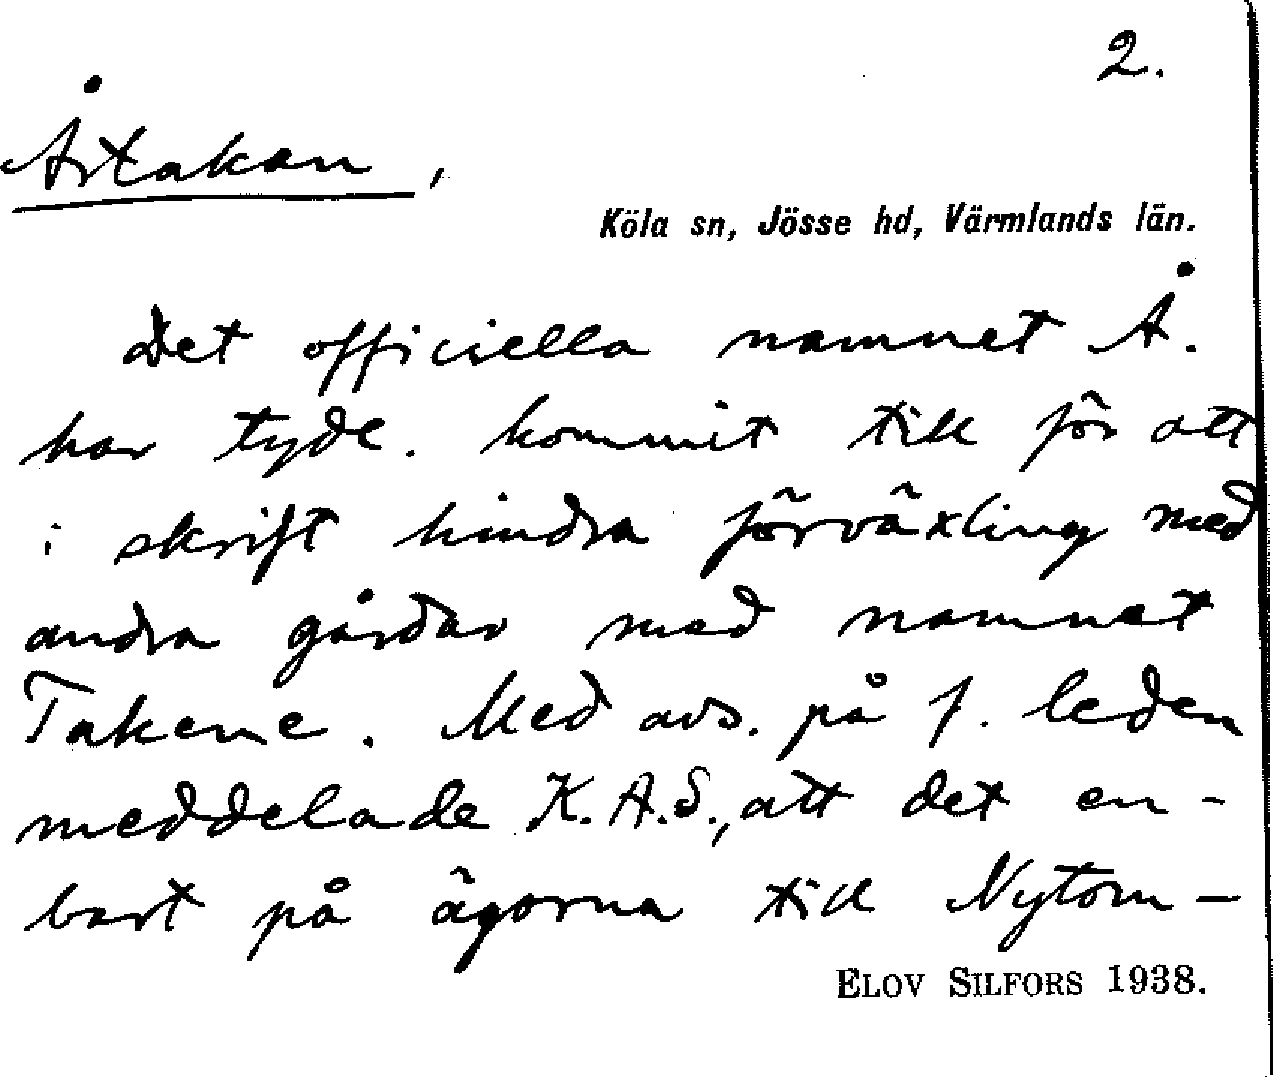 2.
Årtakan,
Köla sn, Jösse hd, Värmlands län.
Det officiella namnet Å.
har tyde. kommit till för att
i skrift hindra förväxling med
andra gårdar med namnet
Takene. Med avs. på f. leden
meddelade K. A. S., att det en-
bart på ägorna till Nytom-
ELOV SILFORS 1938.